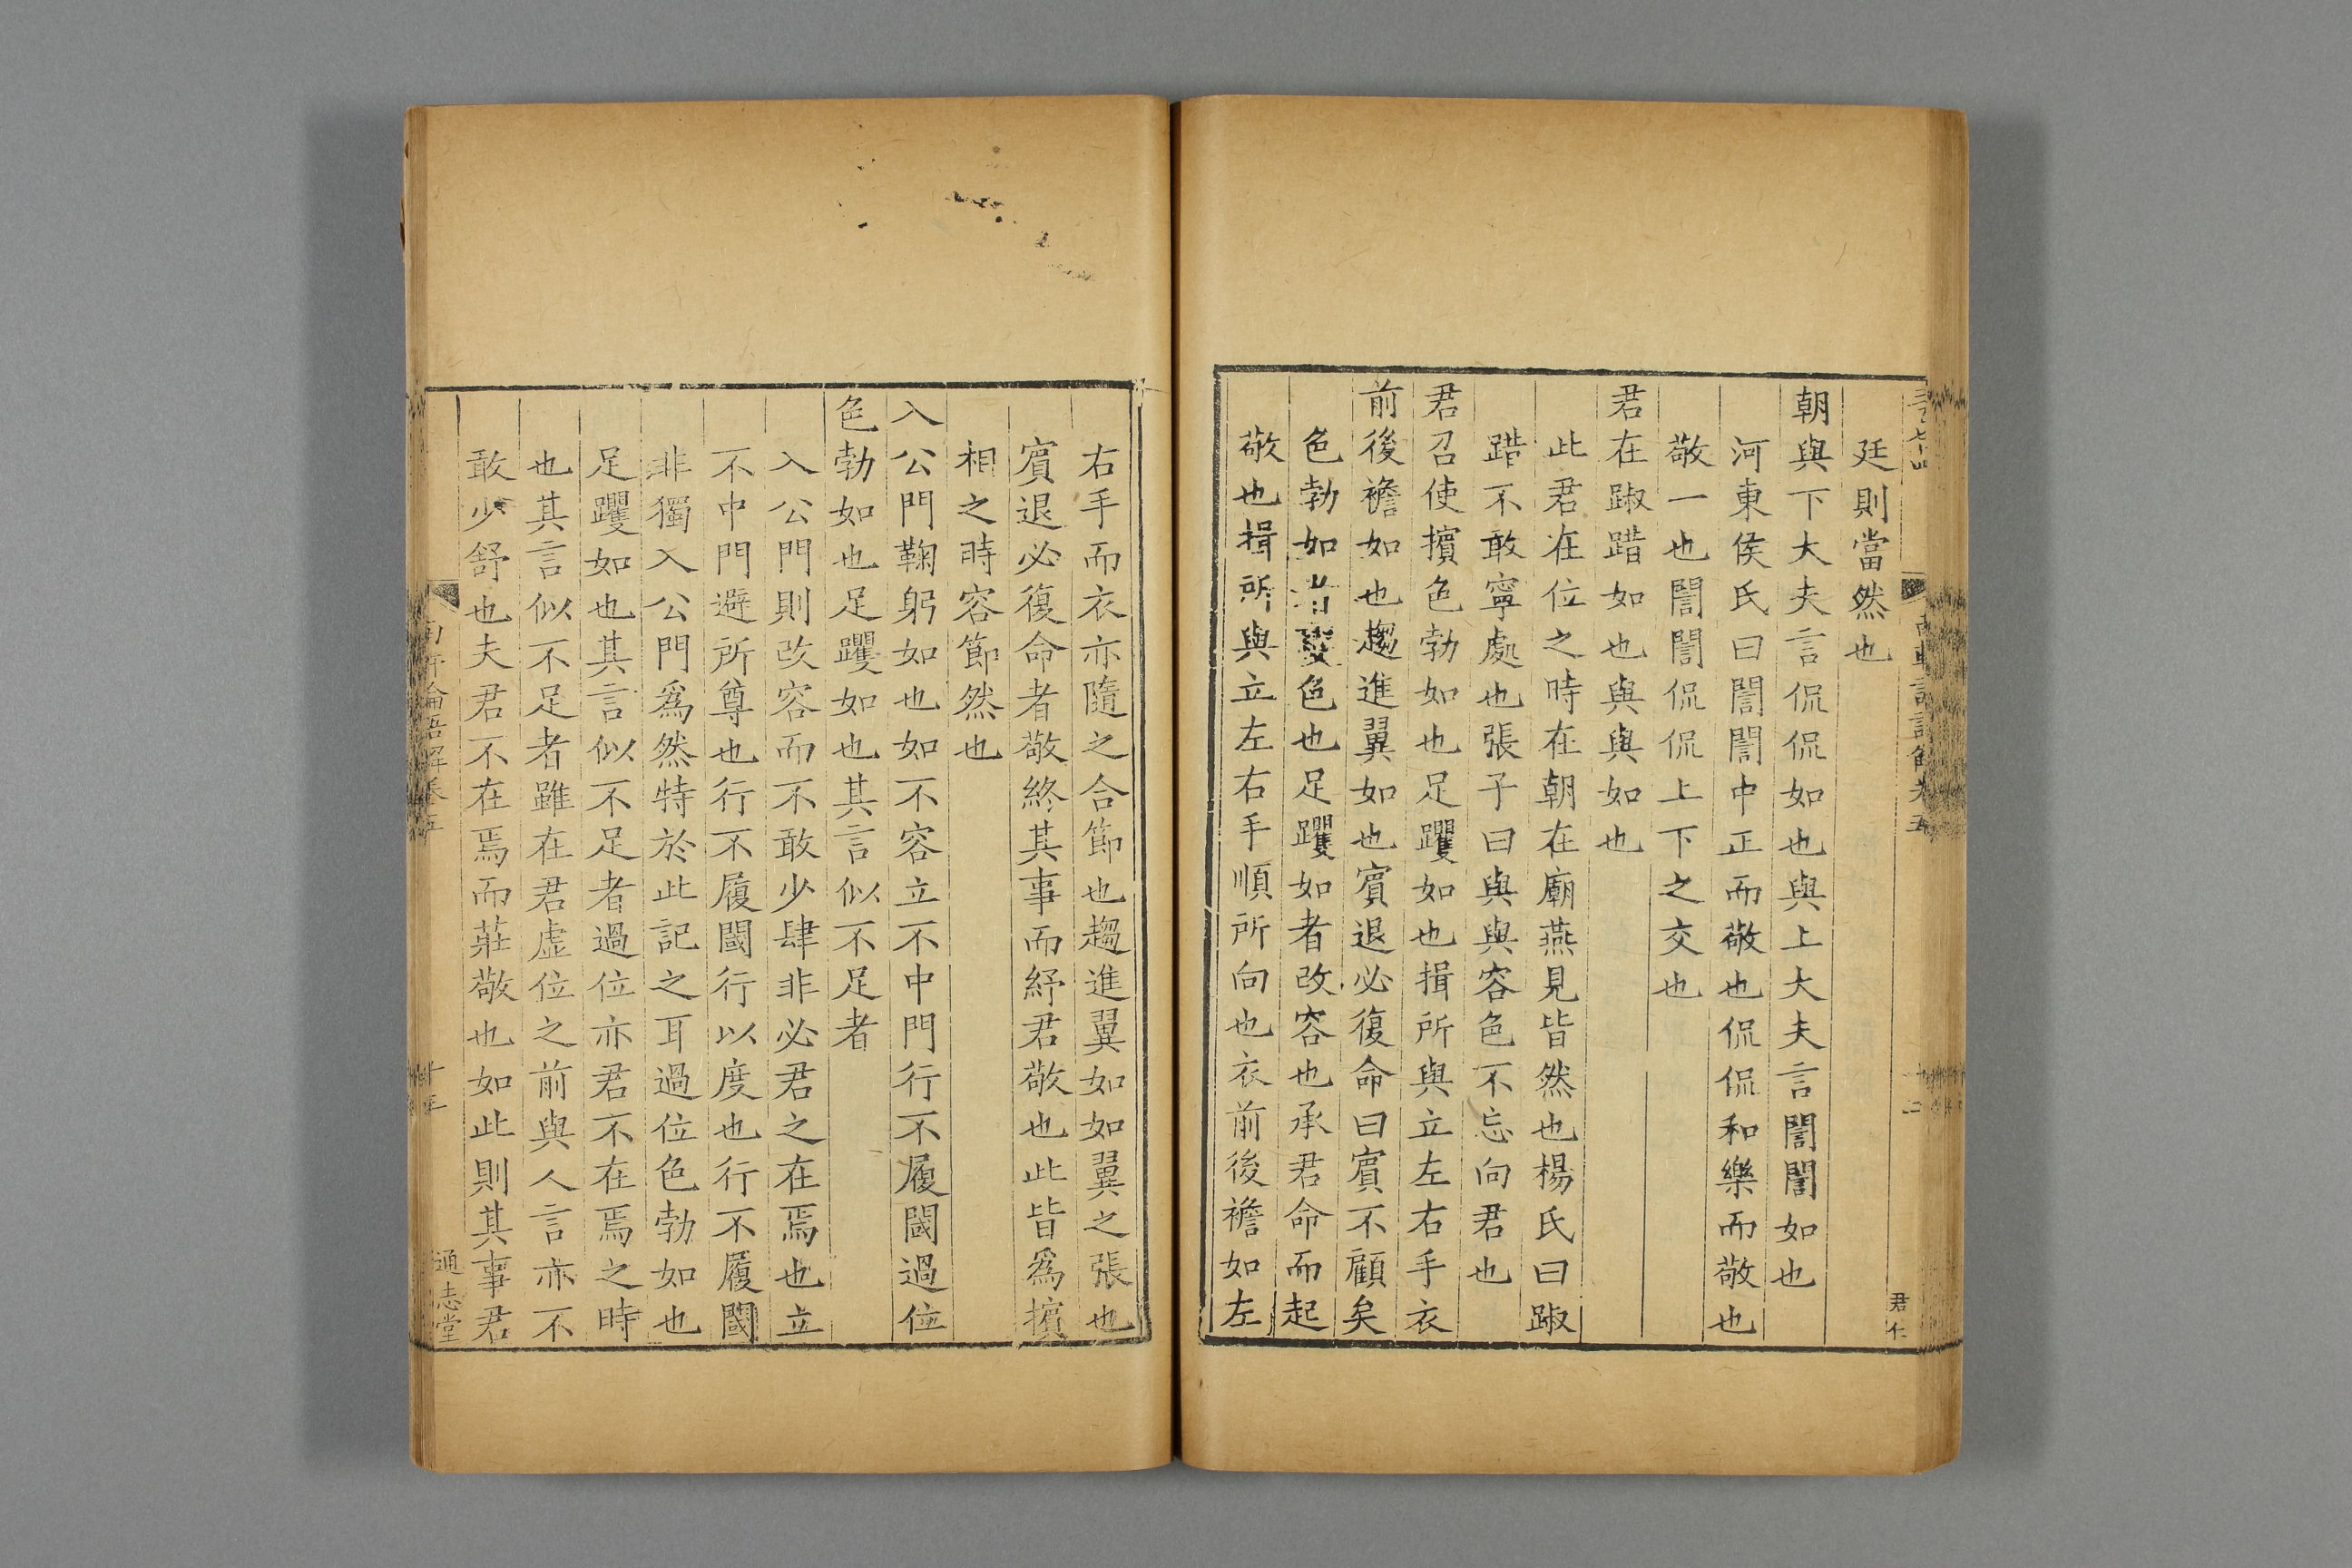 廷則當然也
朝與下大夫言侃侃如也與上大夫言誾誾如也
河東侯氏曰誾誾中正而敬也侃侃和樂而敬也
敬一也誾誾侃侃上下之交也
君在踧踖如也與與如也
此君在位之時在朝在廟燕見皆然也楊氏曰踧
踖不敢寧處也張子曰與與容色不忘向君也
君召使擯色勃如也足躩如也揖所與立左右手衣
前後襜如也趨進翼如也賓退必復命曰賓不顧矣
色勃如者變色也足躩如者改容也承君命而起
敬也揖所與立左右手順所向也衣前後襜如左
君仁
右手而衣亦隨之合節也趨進翼如如翼之張也
賓退必復命者敬終其事而紓君敬也此皆爲擯
相之時容節然也
入公門鞠躬如也如不容立不中門行不履閾過位
色勃如也足躩如也其言似不足者
入公門則改容而不敢少肆非必君之在焉也立
不中門避所尊也行不履閾行以度也行不履閾
非獨入公門爲然特於此記之耳過位色勃如也
足躩如也其言似不足者過位亦君不在焉之時
也其言似不足者雖在君虛位之前與人言亦不
敢少舒也夫君不在焉而莊敬也如此則其事君
通志堂